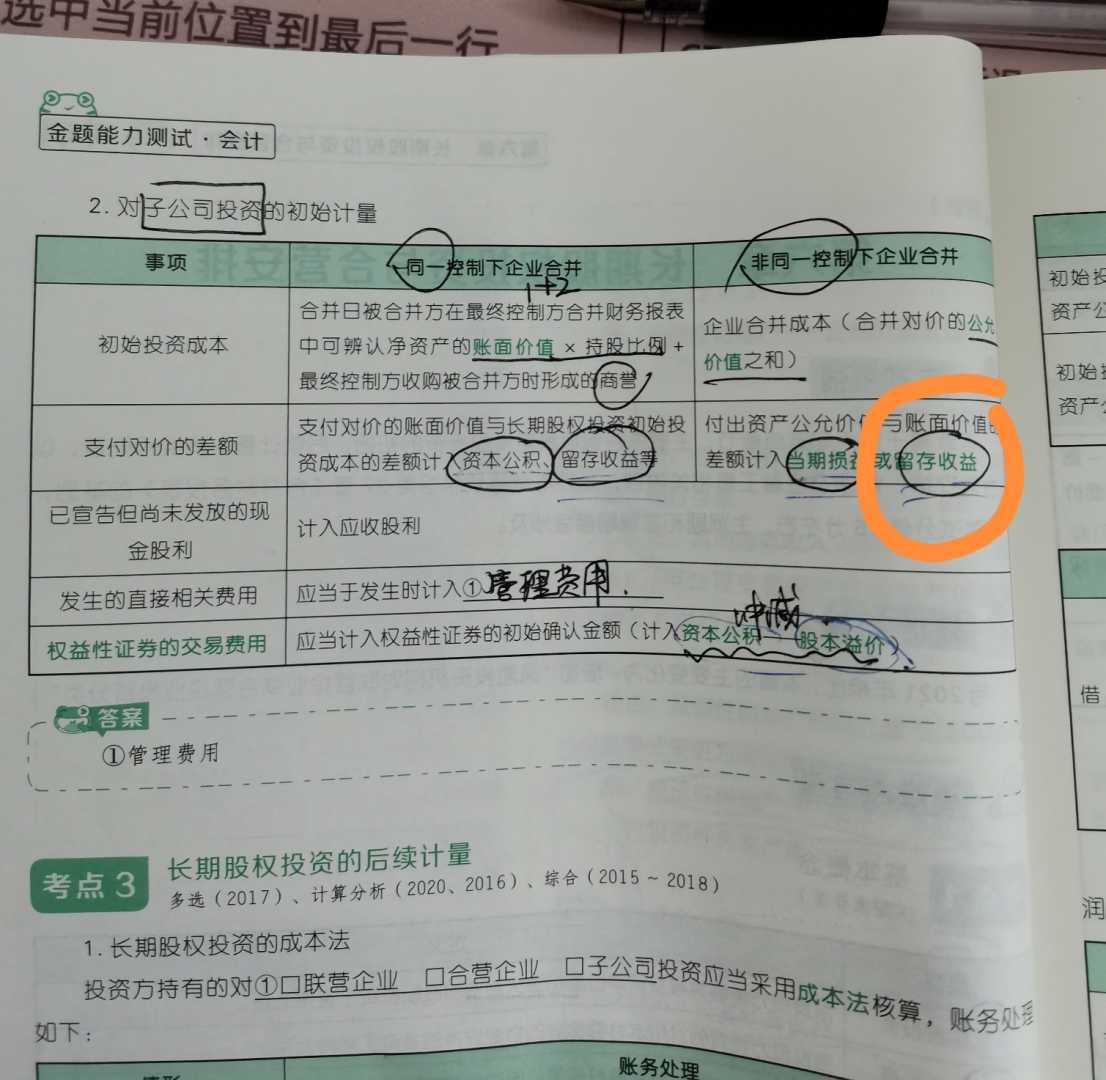 选中当前位置到最后一行
金题能力测试·会计
2. 对子公司投资的初始计量
事项
同一控制下企业合并
非同一控制下企业合并
1+2
初始投资成本
合并日被合并方在最终控制方合并财务报表
中可辨认净资产的账面价值 × 持股比例 +
最终控制方收购被合并方时形成的商誉
企业合并成本（合并对价的公允
价值之和）
支付对价的差额
支付对价的账面价值与长期股权投资初始投
资成本的差额计入资本公积、留存收益等
付出资产公允价值与账面价值的
差额计入当期损益或留存收益
已宣告但尚未发放的现
金股利
计入应收股利
发生的直接相关费用
应当于发生时计入①管理费用.
权益性证券的交易费用
冲减
应当计入权益性证券的初始确认金额（计入资本公积—股本溢价）
答案
①管理费用
考点 3
长期股权投资的后续计量
多选（2017）、计算分析（2020、2016）、综合（2015～2018）
1. 长期股权投资的成本法
投资方持有的对①□联营企业 □合营企业 □子公司投资应当采用成本法核算，账务处理
如下：
情形
账务处理
初始投
资产公
初始投
资产公
借
润